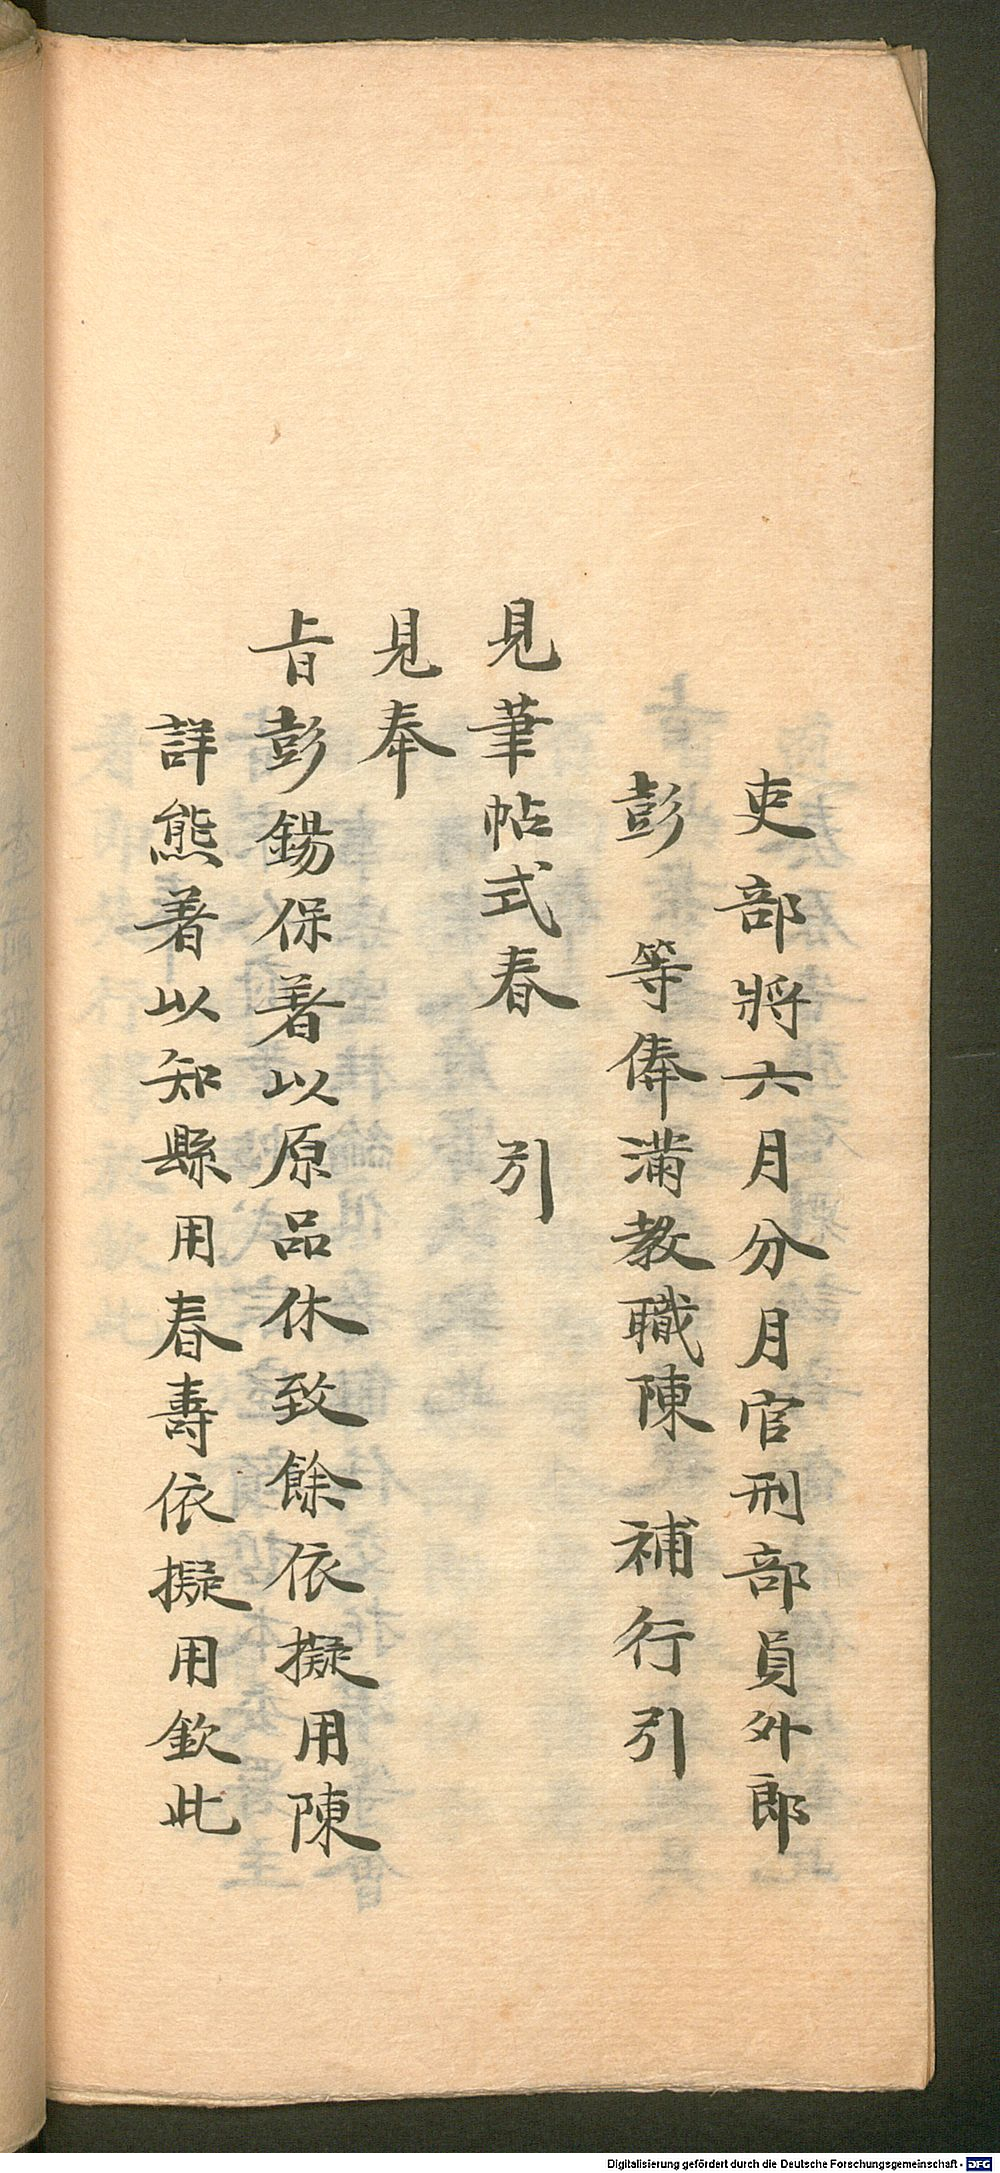 吏部將六月分月官刑部員外郎
彭　等俸滿教職陳　補行引
見筆帖式春　引
見奉
旨彭錫保著以原品休致餘依擬用陳
詳熊著以知縣用春壽依擬用欽此
Digitalisierung gefördert durch die Deutsche Forschungsgemeinschaft - DFG